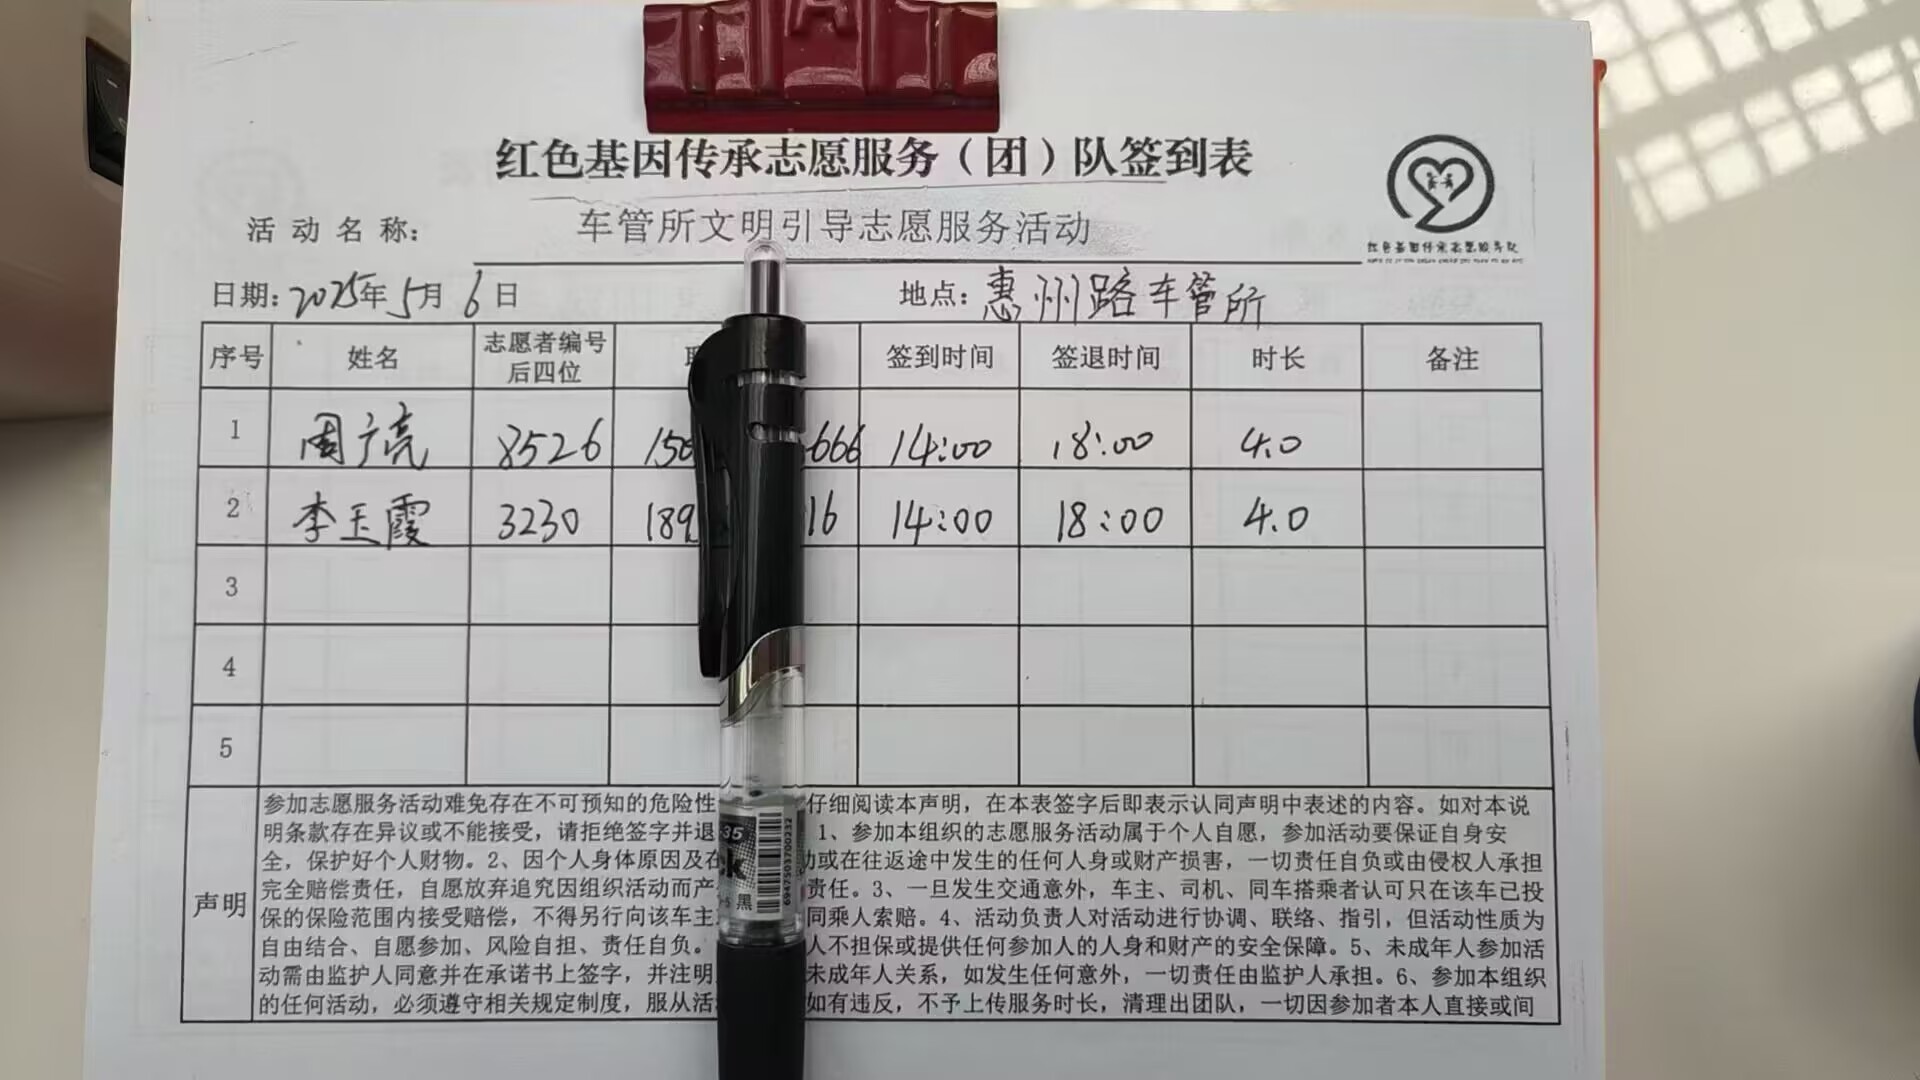 红色基因传承志愿服务（团）队签到表
活动名称： 车管所文明引导志愿服务活动
红色基因传承志愿服务队
日期：2025年5月6日 地点：惠州路车管所
序号 姓名 志愿者编号后四位 签到时间 签退时间 时长 备注
1 周广亮 8526 150 666 14:00 18:00 4.0
2 李玉霞 3230 189 16 14:00 18:00 4.0
3
4
5
声明
参加志愿服务活动难免存在不可预知的危险性 仔细阅读本声明，在本表签字后即表示认同声明中表述的内容。如对本说
明条款存在异议或不能接受，请拒绝签字并退 1、参加本组织的志愿服务活动属于个人自愿，参加活动要保证自身安
全，保护好个人财物。2、因个人身体原因及在 动或在往返途中发生的任何人身或财产损害，一切责任自负或由侵权人承担
完全赔偿责任，自愿放弃追究因组织活动而产 责任。3、一旦发生交通意外，车主、司机、同车搭乘者认可只在该车已投
保的保险范围内接受赔偿，不得另行向该车主 同乘人索赔。4、活动负责人对活动进行协调、联络、指引，但活动性质为
自由结合、自愿参加、风险自担、责任自负。 人不担保或提供任何参加人的人身和财产的安全保障。5、未成年人参加活
动需由监护人同意并在承诺书上签字，并注明 未成年人关系，如发生任何意外，一切责任由监护人承担。6、参加本组织
的任何活动，必须遵守相关规定制度，服从活 如有违反，不予上传服务时长，清理出团队，一切因参加者本人直接或间
35
ck
黑
6947503700232